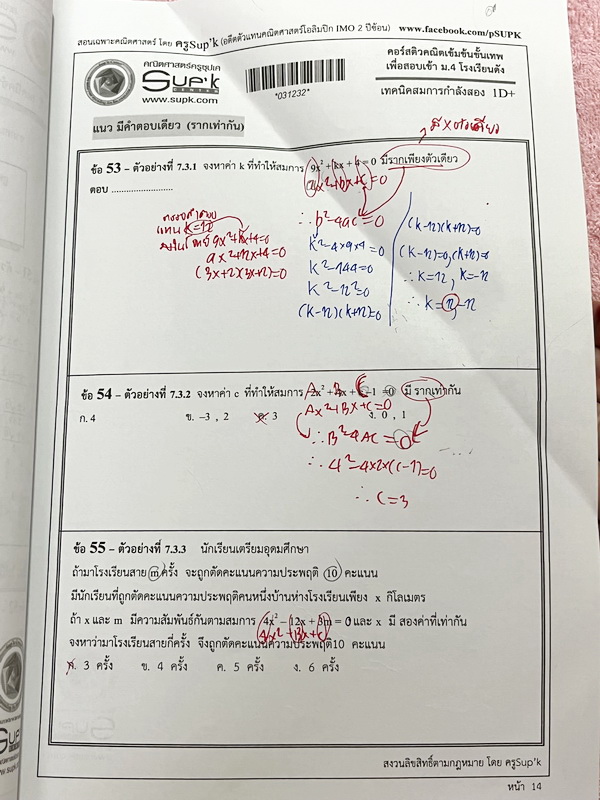 สอนเฉพาะคณิตศาสตร์ โดย ครูSup'k (อดีตตัวแทนคณิตศาสตร์โอลิมปิก IMO 2 ปีซ้อน) www.facebook.com/pSUPK
คณิตศาสตร์ครูซุปเค
Sup'k
CENTER
www.supk.com
*031232*
คอร์สติวคณิตเข้มข้นขั้นเทพ
เพื่อสอบเข้า ม.4 โรงเรียนดัง
เทคนิคสมการกำลังสอง 1D+
แนว มีคำตอบเดียว (รากเท่ากัน)
มี x ตัวเดียว
ข้อ 53 – ตัวอย่างที่ 7.3.1 จงหาค่า k ที่ทำให้สมการ 9x² + kx + 4 = 0 มีรากเพียงตัวเดียว
ตอบ ........................
ax²+bx+c=0
∴ b²-4ac=0
k²-4×9×4=0
k²-144=0
k²-12²=0
(k-12)(k+12)=0
(k-12)(k+12)=0
(k-12)=0,(k+12)=0
∴ k=12, k=-12
∴ k=12,-12
ตรวจคำตอบ
แทน k=12
9x²+kx+4=0
9x²+12x+4=0
(3x+2)(3x+2)=0
ข้อ 54 – ตัวอย่างที่ 7.3.2 จงหาค่า c ที่ทำให้สมการ 2x² + 4x + c – 1 = 0 มี รากเท่ากัน
ก. 4 ข. –3 , 2 ค. 3 ง. 0 , 1
A B C
Ax²+Bx+C=0
∴ B²-4AC=0
∴ 4²-4×2×(c-1)=0
∴ c=3
ข้อ 55 – ตัวอย่างที่ 7.3.3 นักเรียนเตรียมอุดมศึกษา
ถ้ามาโรงเรียนสาย m ครั้ง จะถูกตัดคะแนนความประพฤติ 10 คะแนน
มีนักเรียนที่ถูกตัดคะแนนความประพฤติคนหนึ่งบ้านห่างโรงเรียนเพียง x กิโลเมตร
ถ้า x และ m มีความสัมพันธ์กันตามสมการ 4x² – 12x + 3m = 0 และ x มี สองค่าที่เท่ากัน
จงหาว่ามาโรงเรียนสายกี่ครั้ง จึงถูกตัดคะแนนความประพฤติ10 คะแนน
ก. 3 ครั้ง ข. 4 ครั้ง ค. 5 ครั้ง ง. 6 ครั้ง
สงวนลิขสิทธิ์ตามกฎหมาย โดย ครูSup'k
หน้า 14